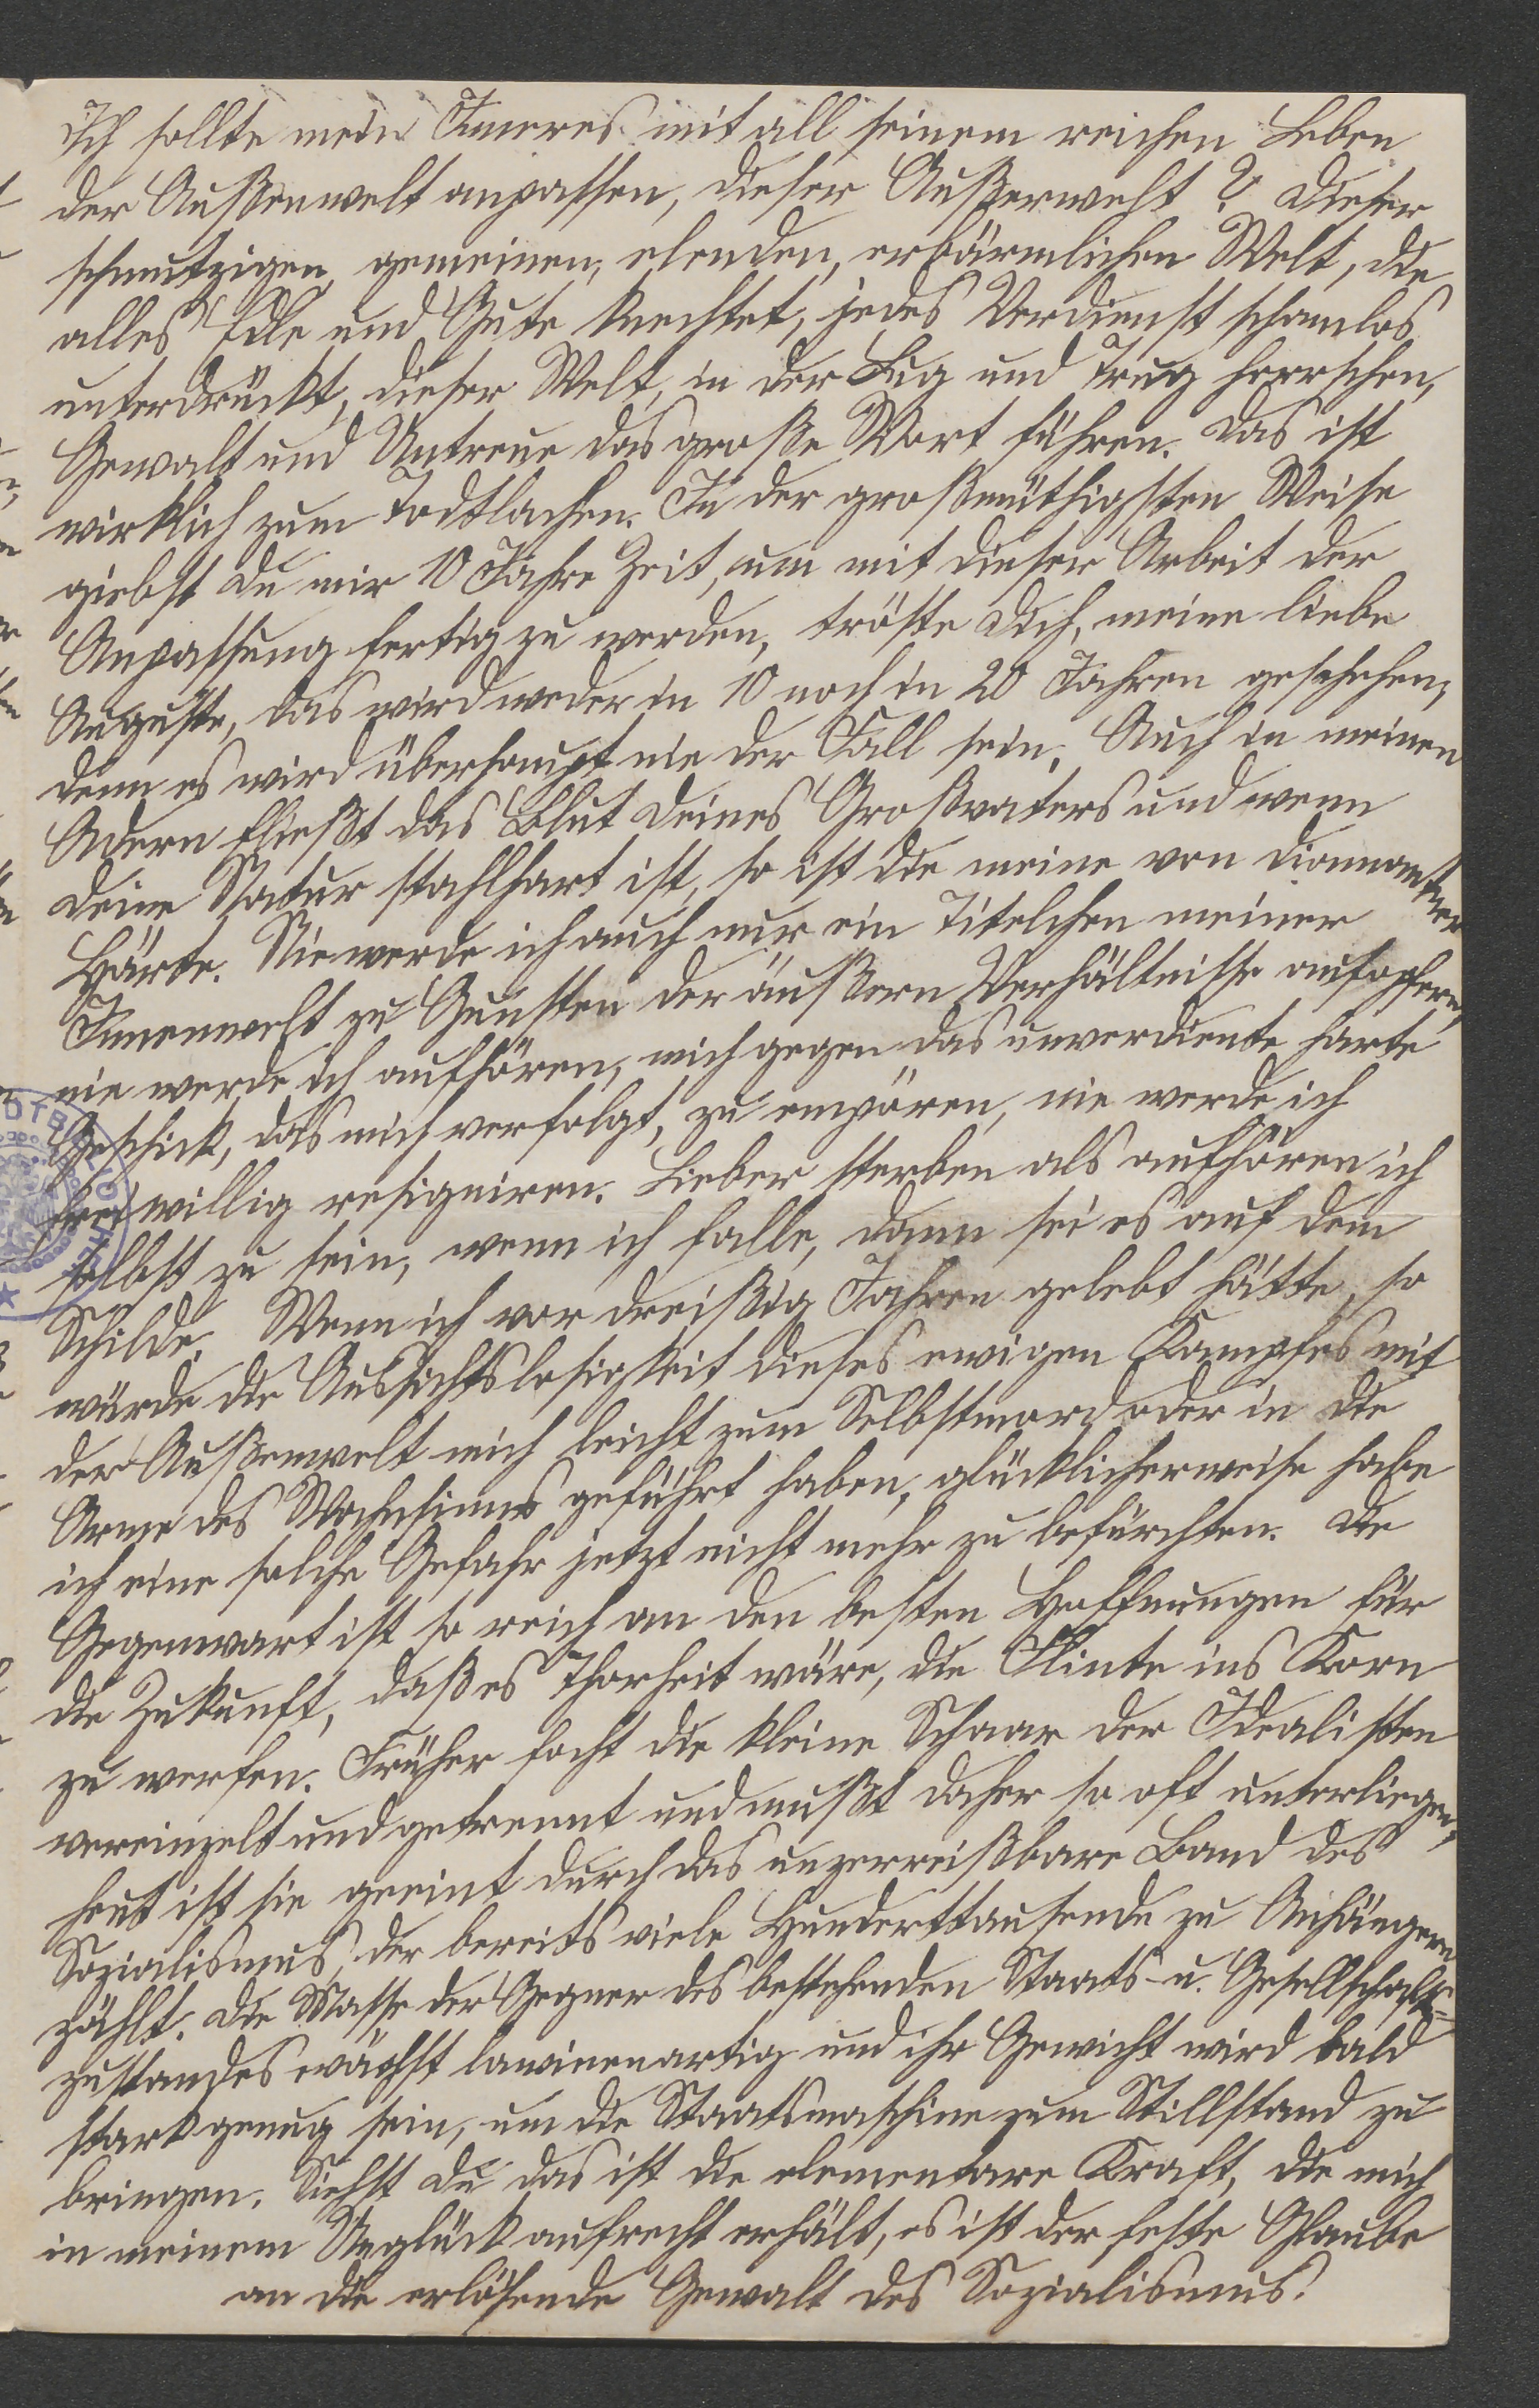 Ich sollte mein Inneres mit all seinem reichen Leben
der Außenwelt anpassen, dieser Außenwelt? Dieser
schmutzigen, gemeinen, elenden, erbärmlichen Welt, die
alles Edle und Gute knechtet, jedes Verdienst schamlos
unterdrückt, dieser Welt, in der Lug und Trug herrschen,
Gewalt und Untreue das große Wort führen. Das ist
wirklich zum Todtlachen. In der großmüthigsten Weise
giebst du mir 10 Jahre Zeit, um mit dieser Arbeit der
Anpassung fertig zu werden, tröste dich, meine liebe
Auguste, das wird weder in 10 noch in 20 Jahren geschehen,
denn es wird überhaupt nie der Fall sein. Auch in meinen
Adern fließt das Blut deines Großvaters und wenn
deine Natur stahlhart ist, so ist die meine von diamantner
Härte. Nie werde ich auch nur ein Titelchen meiner
Innenwelt zu Gunsten der äußern Verhältnisse aufopfern,
nie werde ich aufhören, mich gegen das unverdiente harte
Geschick, das mich verfolgt, zu empören, nie werde ich
freiwillig resigniren. Lieber sterben als aufhören ich
selbst zu sein, wenn ich falle, dann sei es auf dem
Schilde. Wenn ich vor dreißig Jahren gelebt hätte, so
würde die Aussichtslosigkeit dieses ewigen Kampfes mit
der Außenwelt mich leicht zum Selbstmord oder in die
Arme des Wahnsinns geführt haben, glücklicherweise habe
ich eine solche Gefahr jetzt nicht mehr zu befürchten. Die
Gegenwart ist so reich an den besten Hoffnungen für
die Zukunft, daß es Thorheit wäre, die Flinte ins Korn
zu werfen. Früher focht die kleine Schaar der Idealisten
vereinzelt und getrennt und mußt daher so oft unterliegen,
heut ist sie geeint durch das unzerreißbare Band des
Sozialismus, der bereits viele Hunderttausende zu Anhängern
zählt. Die Masse der Gegner des bestehenden Staats- u. Gesellschafts-
zustandes wächst lawinenartig und ihr Gewicht wird bald
stark genug sein, um die Staatsmaschine zum Stillstand zu
bringen. Siehst du, das ist die elementare Kraft, die mich
in meinem Unglück aufrecht erhält, es ist der feste Glaube
an die erlösende Gewalt des Sozialismus!